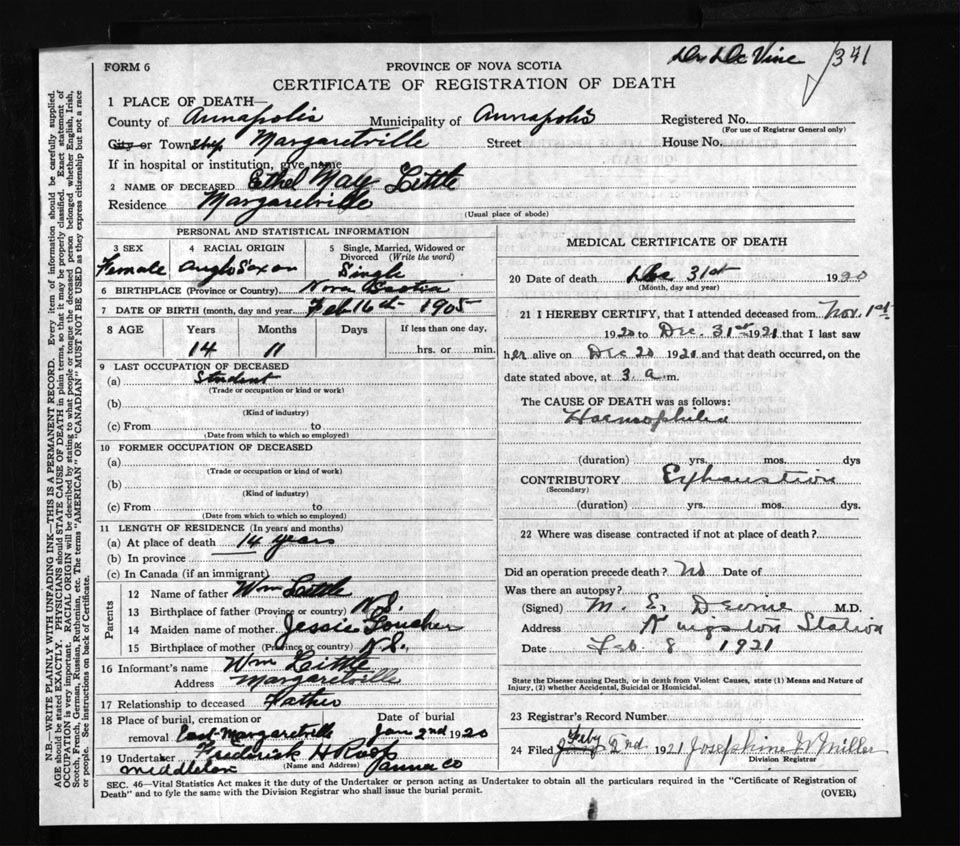 Dr De Vine 341
FORM 6 PROVINCE OF NOVA SCOTIA
CERTIFICATE OF REGISTRATION OF DEATH
1 PLACE OF DEATH—
County of Annapolis Municipality of Annapolis Registered No.
(For use of Registrar General only)
City or Township Margaretville Street House No.
If in hospital or institution, give name
2 NAME OF DECEASED Ethel May Little
Residence Margaretville
(Usual place of abode)
PERSONAL AND STATISTICAL INFORMATION
3 SEX 4 RACIAL ORIGIN 5 Single, Married, Widowed or Divorced (Write the word)
Female Anglo Saxon Single
6 BIRTHPLACE (Province or Country) Nova Scotia
7 DATE OF BIRTH (month, day and year) Feb 16th 1905
8 AGE Years Months Days If less than one day,
14 11 hrs. or min.
9 LAST OCCUPATION OF DECEASED
(a) Student
(Trade or occupation or kind or work)
(b)
(Kind of industry)
(c) From to
(Date from which to which so employed)
10 FORMER OCCUPATION OF DECEASED
(a)
(Trade or occupation or kind of work)
(b)
(Kind of industry)
(c) From to
(Date from which to which so employed)
11 LENGTH OF RESIDENCE (In years and months)
(a) At place of death 14 years
(b) In province
(c) In Canada (if an immigrant)
Parents
12 Name of father Wm Little
13 Birthplace of father (Province or country) N.S.
14 Maiden name of mother Jessie Goucher
15 Birthplace of mother (Province or country) N.S.
16 Informant's name Wm Little
Address Margaretville
17 Relationship to deceased Father
18 Place of burial, cremation or removal East Margaretville Date of burial Jan 2nd 1920
19 Undertaker Frederick H Roop
(Name and Address)
Middleton Anna Co
MEDICAL CERTIFICATE OF DEATH
20 Date of death Dec 31st 1920
(Month, day and year)
21 I HEREBY CERTIFY, that I attended deceased from Nov. 1st
1920 to Dec. 31st 1921 that I last saw
her alive on Dec 20 1921 and that death occurred, on the
date stated above, at 3 a m.
The CAUSE OF DEATH was as follows:
Haemophilia
(duration) yrs. mos. dys
CONTRIBUTORY Exhaustion
(Secondary)
(duration) yrs. mos. dys.
22 Where was disease contracted if not at place of death?
Did an operation precede death? No Date of
Was there an autopsy?
(Signed) M. E. Devine M.D.
Address Kingston Station
Date Feb. 8 1921
State the Disease causing Death, or in death from Violent Causes, state (1) Means and Nature of
Injury, (2) whether Accidental, Suicidal or Homicidal.
23 Registrar's Record Number
24 Filed Feby 2nd 1921 Josephine W Miller
Division Registrar
SEC. 46—Vital Statistics Act makes it the duty of the Undertaker or person acting as Undertaker to obtain all the particulars required in the "Certificate of Registration of
Death" and to fyle the same with the Division Registrar who shall issue the burial permit. (OVER)
N.B.—WRITE PLAINLY WITH UNFADING INK—THIS IS A PERMANENT RECORD. Every item of information should be carefully supplied.
AGE should be stated EXACTLY. PHYSICIANS should STATE CAUSE OF DEATH in plain terms, so that it may be properly classified. Exact statement of
OCCUPATION is very important. RACIAL ORIGIN will be described by stating to what people or tongue the deceased person belonged whether English, Irish,
Scotch, French, German, Russian, Ruthenian, etc. The terms "AMERICAN" OR "CANADIAN" MUST NOT BE USED as they express citizenship but not a race
or people. See instructions on back of Certificate.